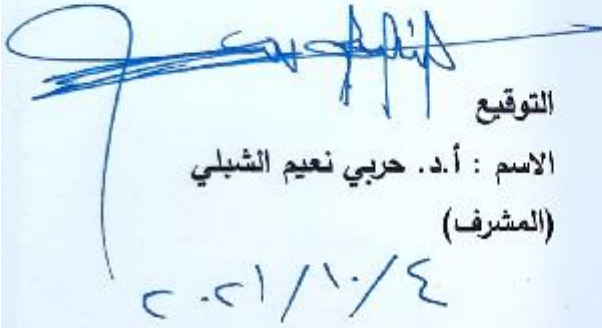 التوقيع
الاسم : أ.د. حربي نعيم الشبلي
(المشرف)
٢٠٢١/١٠/٤